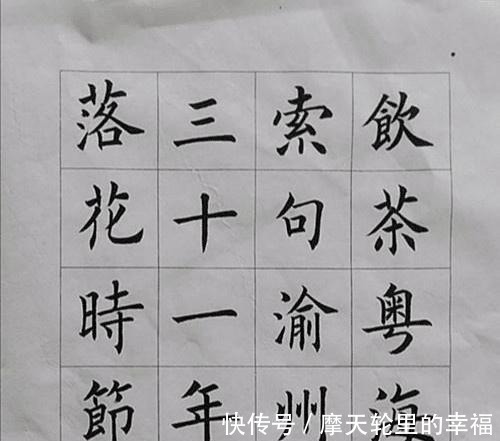 飲茶粤海
索句渝州
三十一年
落花時節
快传号/摩天轮里的幸福